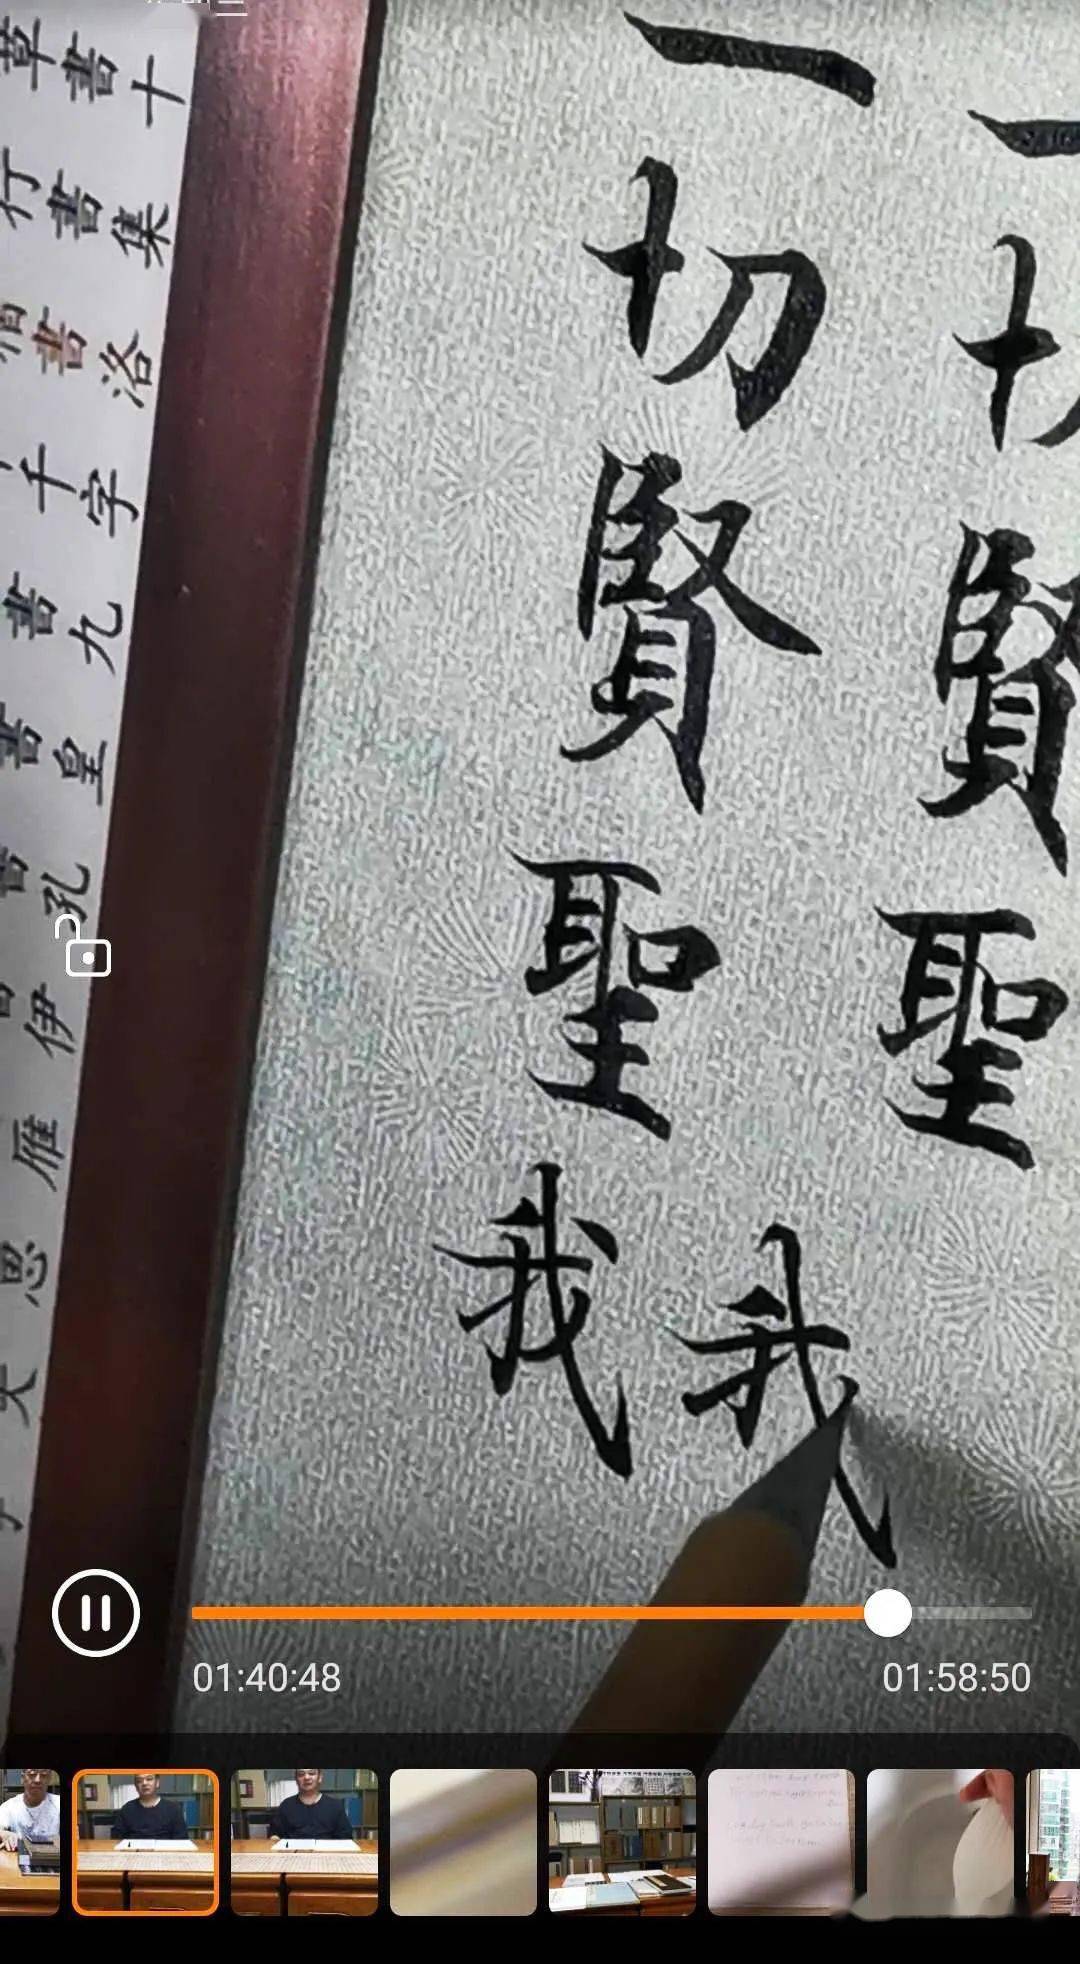 一切賢聖我
一切賢聖我
十集洛字九皇孔伊雁思大
書書書千書書
草行
01:40:48
01:58:50